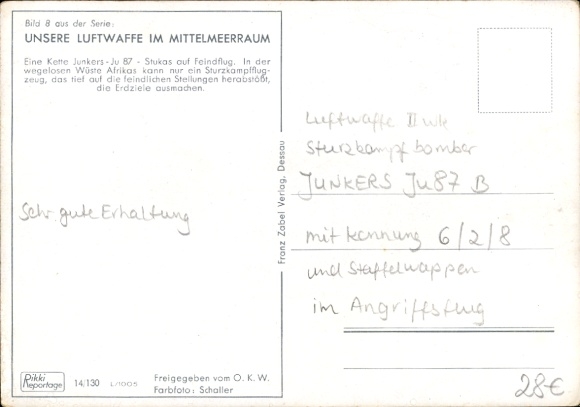 Bild 8 aus der Serie:
UNSERE LUFTWAFFE IM MITTELMEERRAUM
Eine Kette Junkers-Ju 87 - Stukas auf Feindflug. In der
wegelosen Wüste Afrikas kann nur ein Sturzkampfflug-
zeug, das tief auf die feindlichen Stellungen herabstößt,
die Erdziele ausmachen.
Sehr gute Erhaltung
Rikki
Reportage
14/130 L/1005
Freigegeben vom O. K. W.
Farbfoto: Schaller
Franz Zabel Verlag, Dessau
Luftwaffe II wk
Sturzkampf bomber
JUNKERS Ju87 B
mit kennung 6/2/8
und Staffelwappen
im Angriffsflug
28€